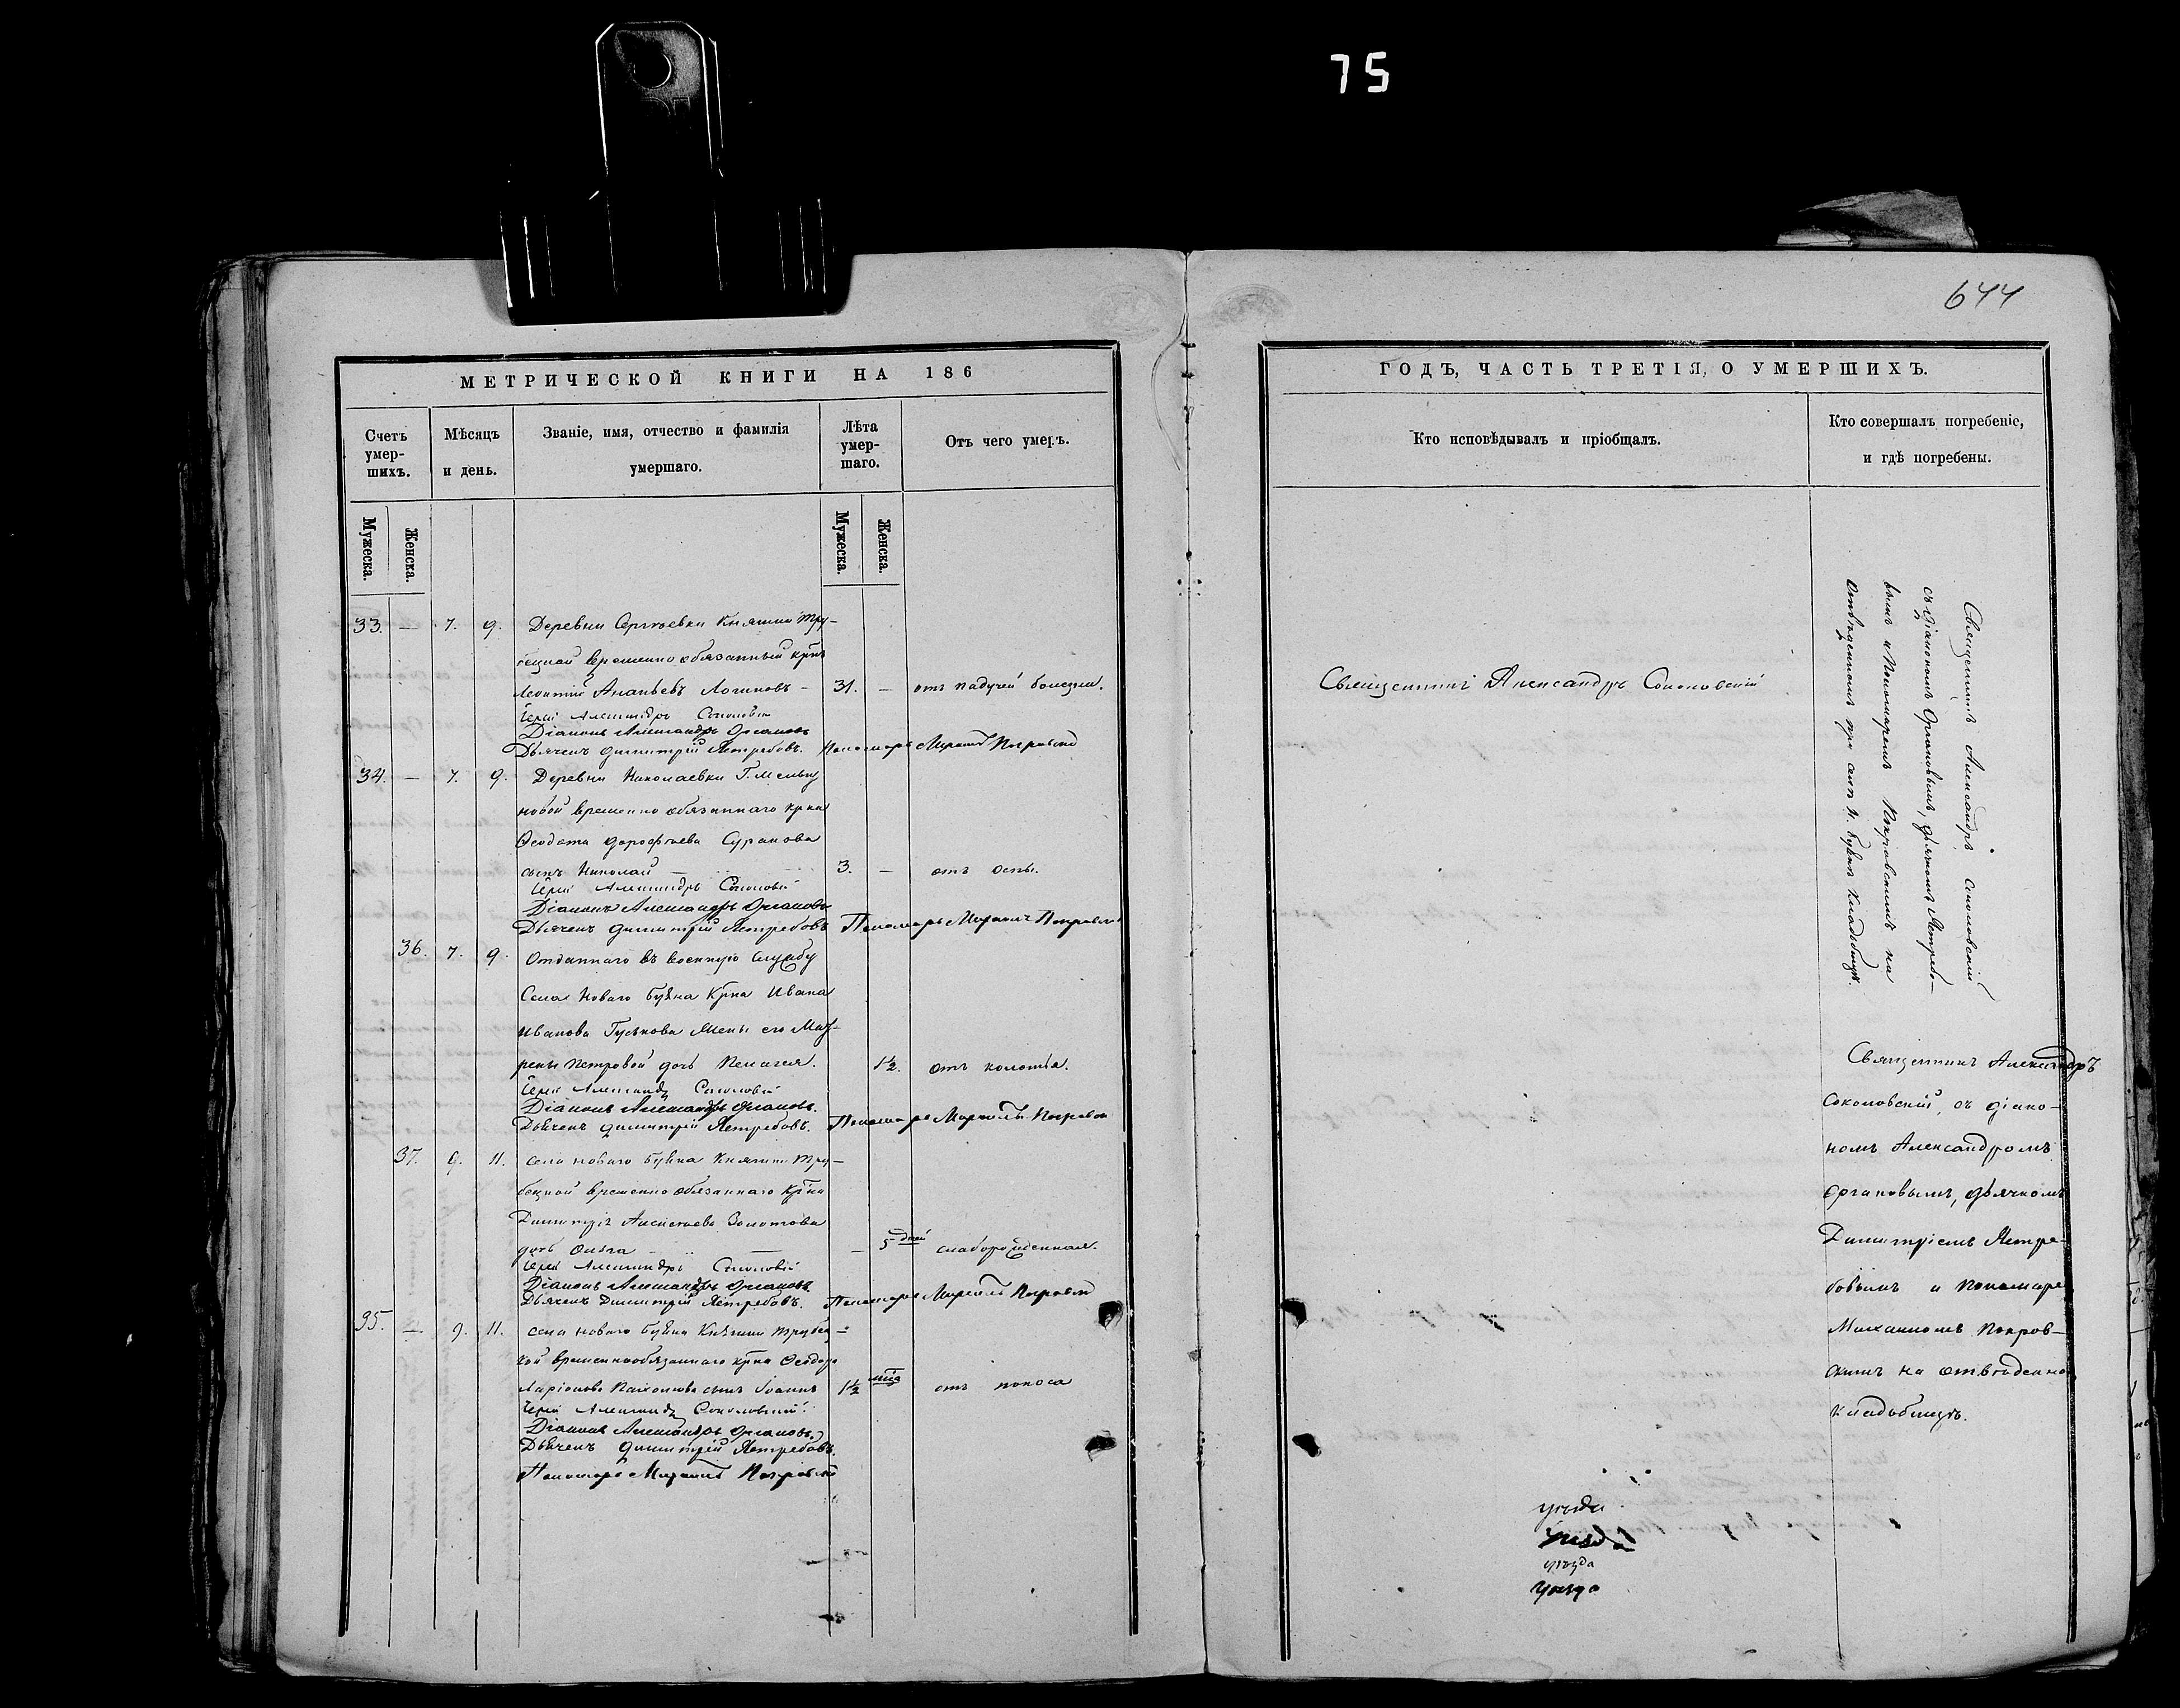 75
644
МЕТРИЧЕСКОЙ КНИГИ НА 186
Счетъ умер-шихъ.
Мѣсяцъ и день.
Званіе, имя, отчество и фамилія умершаго.
Лѣта умер-шаго.
Отъ чего умеръ.
Мужеска.
Женска.
Мужеска.
Женска.
33. — 7. 9. Деревни Сергѣевки Княгини Тру-
бецкой временно обязанный крнъ
Леонтій Ананьевъ Логиновъ — 31. — отъ падучей болезни.
Іерей Александръ Соколовскій
Діаконъ Александръ Органовъ
Дьячекъ Димитрій Ястребовъ. Пономарь Михаилъ Покровскій
34. — 7. 9. Деревни Николаевки Г. Мельгу
новой временно обязаннаго крна
Ѳеодота Дорофѣева Суранова
сынъ Николай — 3. — отъ оспы.
Іерей Александръ Соколовскій
Діаконъ Александръ Органовъ
Дьячекъ Димитрій Ястребовъ Пономарь Михаилъ Покровскій
36. 7. 9. Отданнаго въ военную службу
Села Новаго Буяна Крна Ивана
Иванова Гуськова жены его Мат-
рены Петровой дочь Пелагея. 1½. отъ колотья.
Іерей Александръ Соколовскій
Діаконъ Александръ Органовъ.
Дьячекъ Димитрій Ястребовъ. Пономарь Михаилъ Покровскій
37. 9. 11. Села новаго Буяна Княгини Тру-
бецкой временно обязаннаго Крна
Димитрія Алексѣева Золотова
дочь Ольга — — 5 дней слаборожденная.
Іерей Александръ Соколовскій
Діаконъ Александръ Органовъ.
Дьячекъ Димитрій Ястребовъ. Пономарь Михаилъ Покровскій
35. — 9. 11. Села новаго Буяна Княгини Трубец-
кой временнообязаннаго крна Ѳеодора
Ларіонова сынъ Іоаннъ 1½ мца отъ поноса
Іерей Александръ Соколовскій.
Діаконъ Александръ Органовъ.
Дьячекъ Димитрій Ястребовъ.
Пономарь Михаилъ Покровскій
ГОДЪ, ЧАСТЬ ТРЕТІЯ, О УМЕРШИХЪ.
Кто исповѣдывалъ и пріобщалъ.
Кто совершалъ погребеніе, и гдѣ погребены.
Священникъ Александръ Соколовскій
Священникъ Александръ Соколовскій
съ Діакономъ Органовымъ, дьячкомъ Ястребо-
вымъ и Пономаремъ Покровскимъ на
отведенномъ при селѣ Н. Буянѣ кладбищѣ.
Священникъ Александръ
Соколовскій, съ діако-
номъ Александромъ
Органовымъ, дьячкомъ
Димитріемъ Ястре-
бовымъ и пономаре
Михаиломъ Покров-
скимъ на отведенно
кладбищѣ.
уѣзда
уѣзда
уѣзда
уѣзда